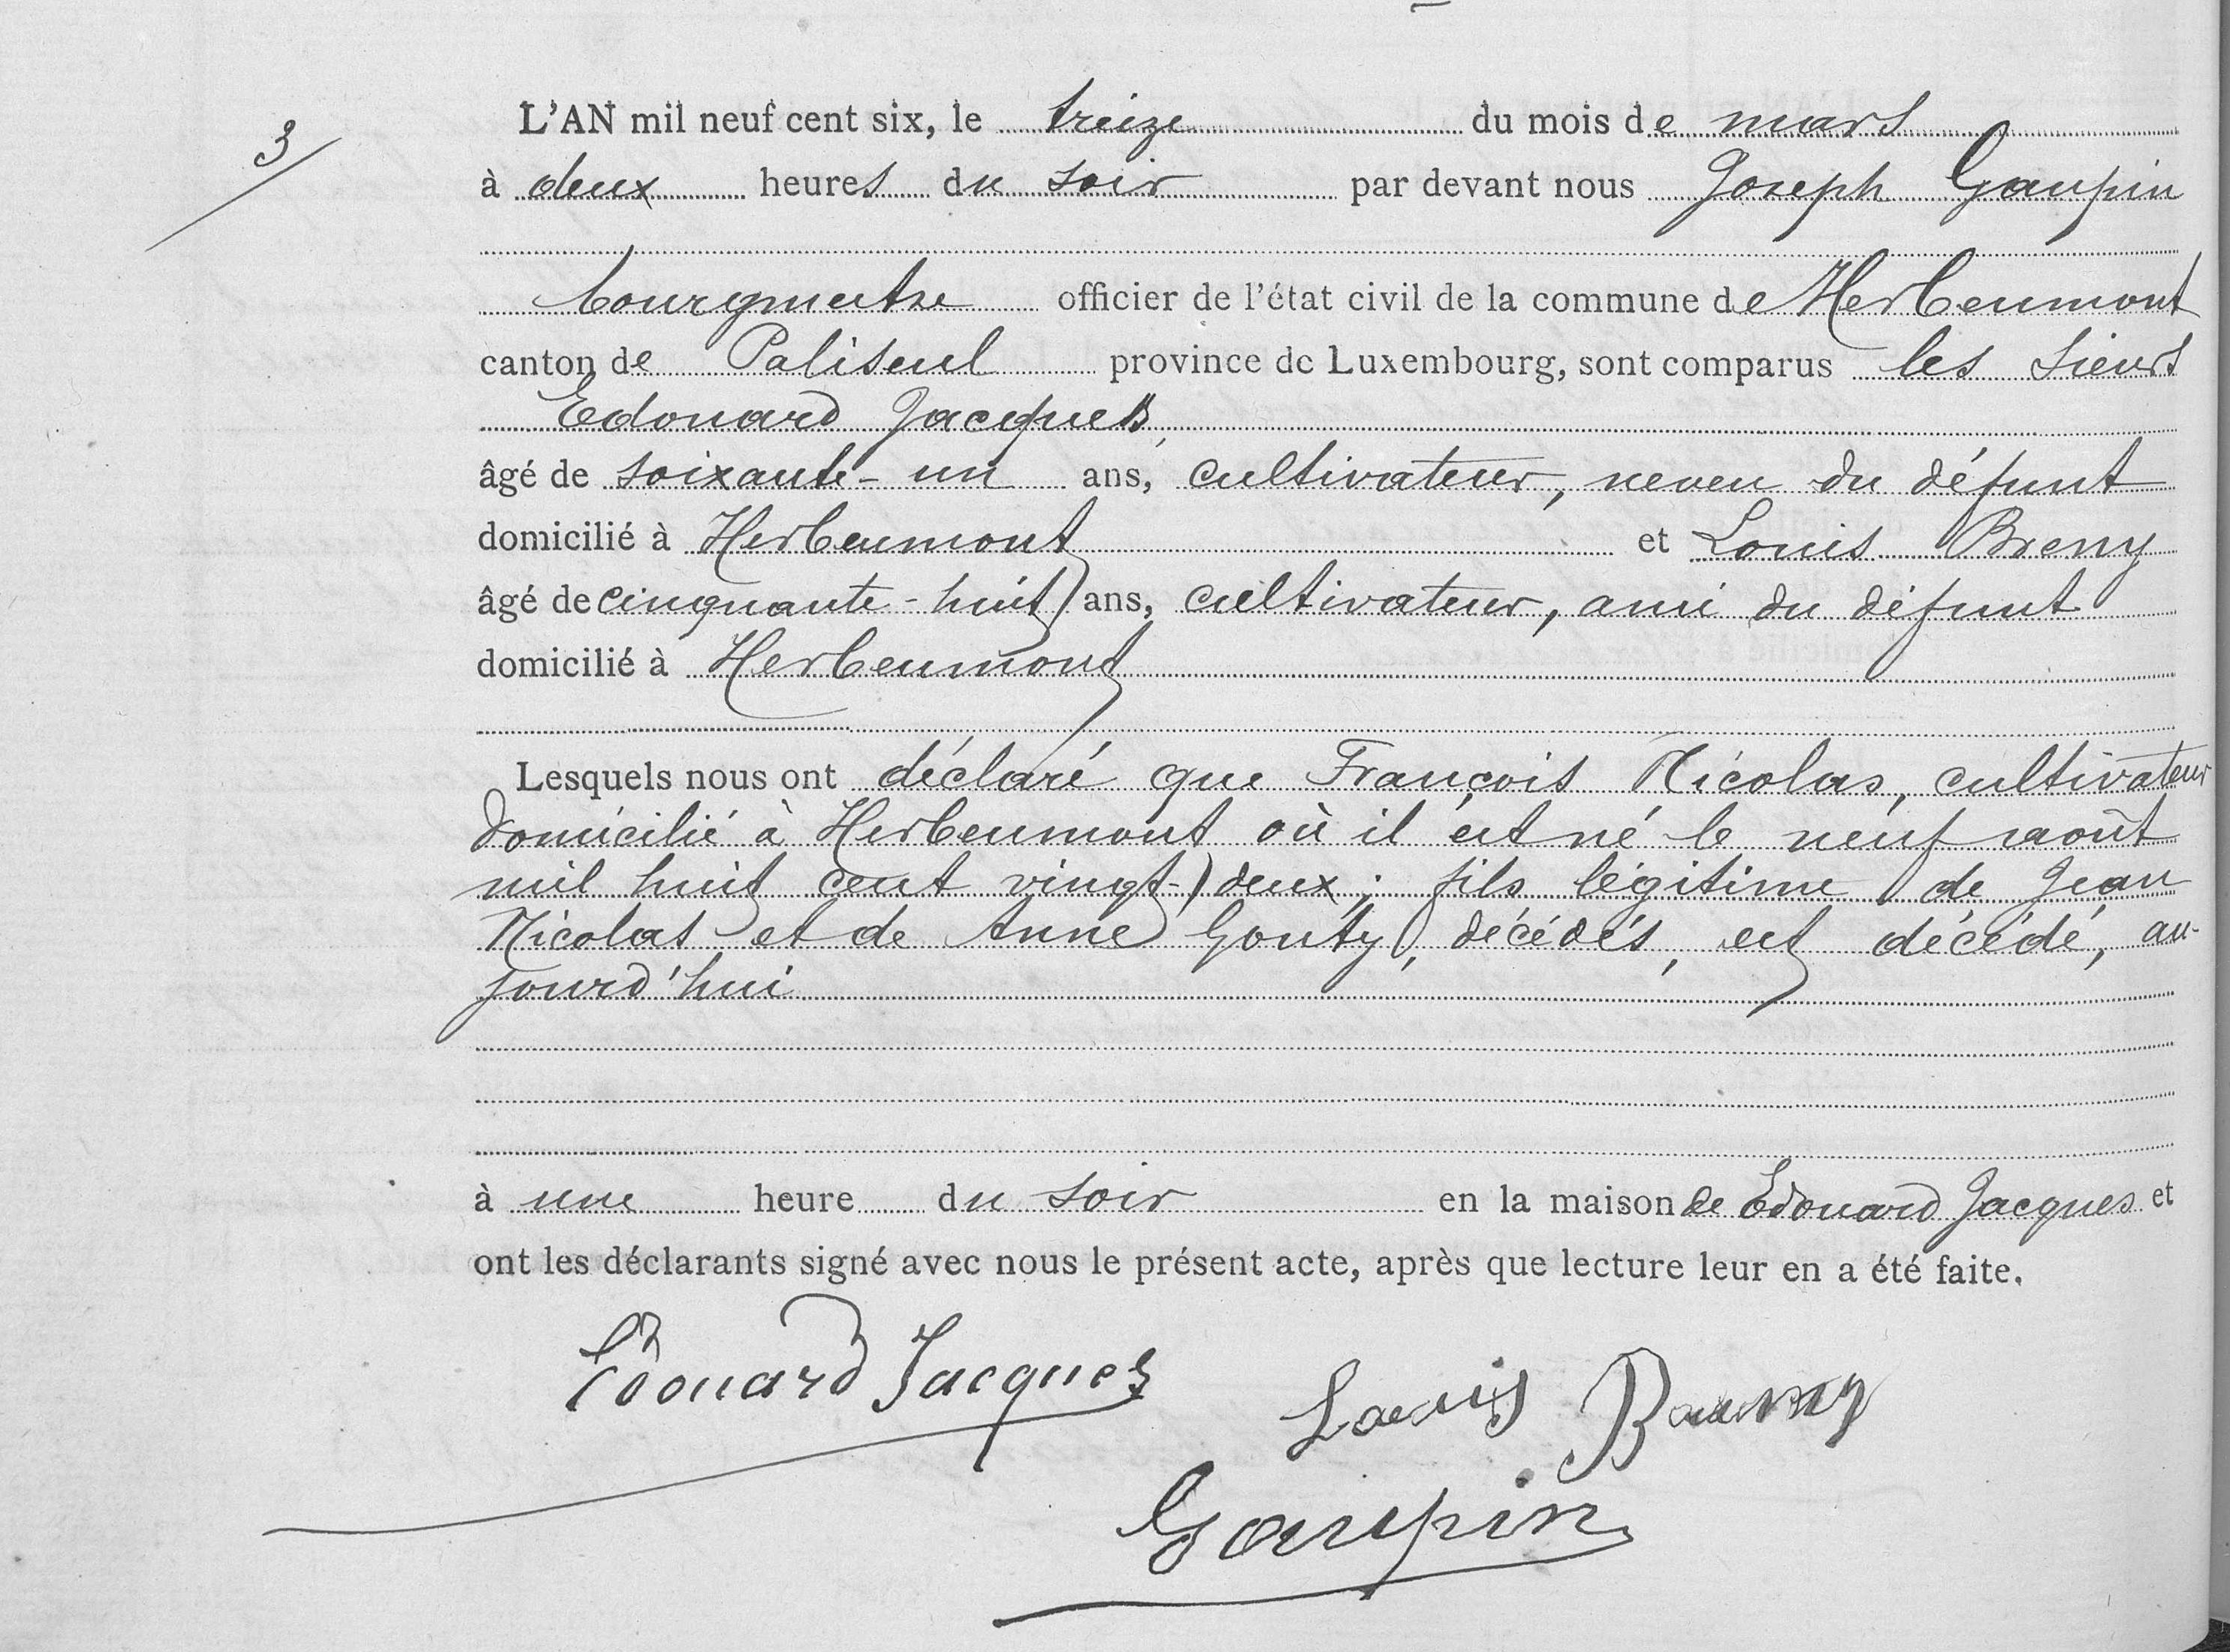 3/
L'AN mil neuf cent six, le treize du mois de mars
à deux heures du soir par devant nous Joseph Gaupin
bourgmestre officier de l'état civil de la commune de Herbeumont
canton de Paliseul province de Luxembourg, sont comparus les sieurs
Edouard Jacques
âgé de soixante-un ans, cultivateur, neveu du défunt
domicilié à Herbeumont et Louis Breny
âgé de cinquante-huit ans, cultivateur, ami du défunt
domicilié à Herbeumont
Lesquels nous ont déclaré que François Nicolas, cultivateur
domicilié à Herbeumont où il est né le neuf août
mil huit cent vingt-deux; fils légitime de Jean
Nicolas et de Anne Gouty, décédés, est décédé, au-
jourd'hui
à une heure du soir en la maison de Edouard Jacques et
ont les déclarants signé avec nous le présent acte, après que lecture leur en a été faite.
Edouard Jacques
Louis
Gaupin